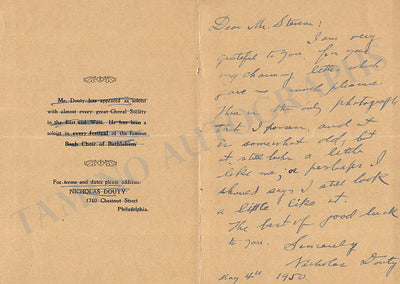 Mr. Douty has appeared as soloist
with almost every great Choral Society
in the East and West. He has been a
soloist in every festival of the famous
Bach Choir of Bethlehem.
For terms and dates please address:
NICHOLAS DOUTY
1710 Chestnut Street
Philadelphia.
Dear Mr. Stevens:
I am very
grateful to you for your
very charming letter which
gave me so much pleasure.
This is the only photograph
that I possess, and it
is somewhat old, but
it still looks a little
like me; or perhaps I
should say I still look
a little like it.
The best of good luck
to you. Sincerely
Nicholas Douty
May 4th 1950
TAMINO AUTOGRAPHS